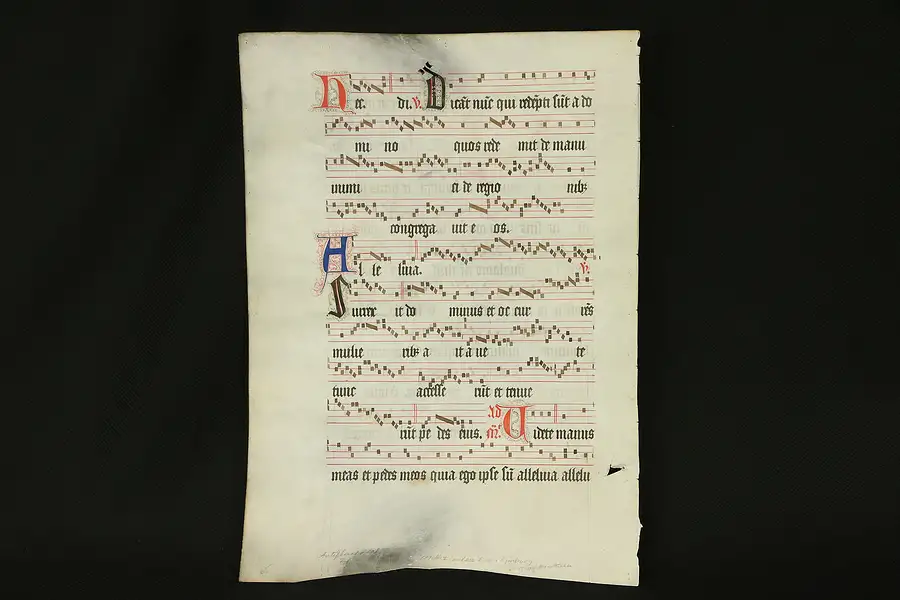 Hec. di. v. Dicāt nūc qui redēpti sūt a do
mi no quos rede mit de manu
inimi ci de regio nibꝫ
congrega uit e os.
Al le luia. v.
Surrex it do minus et oc cur rēs
mulie ribꝫ a it a ue te
tunc accesse rūt et tenue
rūt pe des eius. ad m̄. Uidete manus
meas et pedes meos quia ego ipse sū alleluia allelu